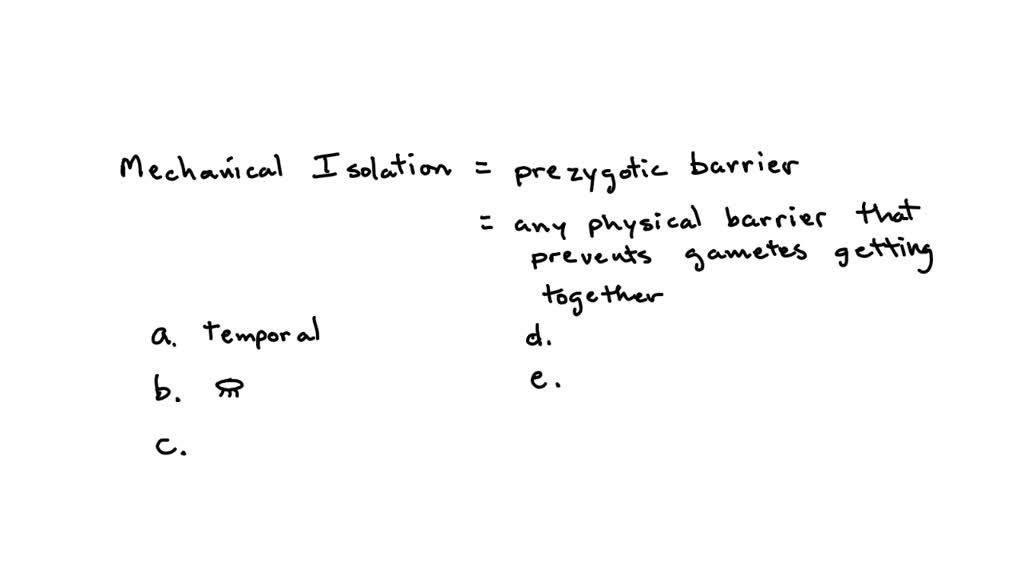 Mechanical Isolation = prezygotic barrier
= any physical barrier that
prevents gametes getting
together
a. temporal
b.
c.
d.
e.